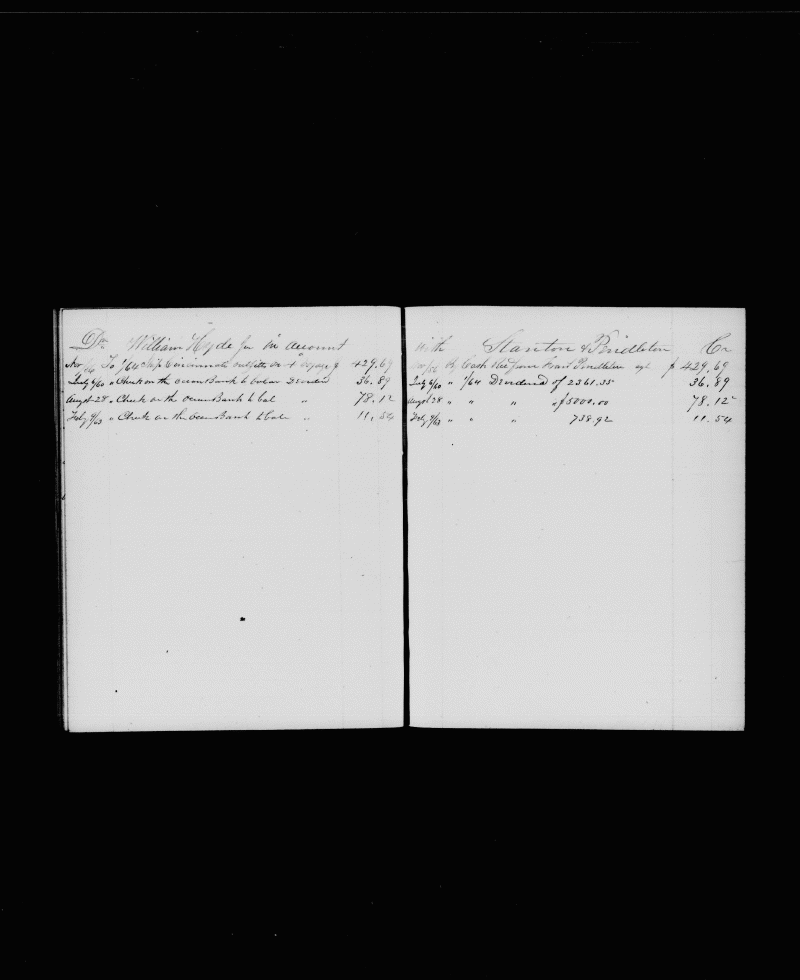 Dr William Hyde Jr in account
To 1/64 Ship Cincinnati outfits on voyage $ 429.69
July 6/60 " Check on the ocean Bank to balance Dividend 36.89
August 28 " Check on the ocean Bank to bal " 78.12
Feby 9/63 " Check on the ocean Bank to bal " 11.54
with Stanton & Pendleton Cr
By Cash Rec'd from Pendleton agt $ 429.69
July 6/60 " 1/64 Dividend of 2361.35 36.89
August 28 " " " " $5000.00 78.12
Feby 9/63 " " " 738.92 11.54